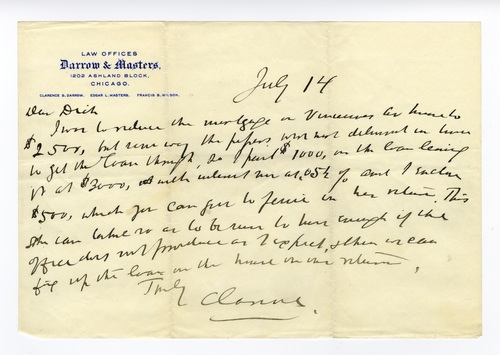 LAW OFFICES
Darrow & Masters,
1202 ASHLAND BLOCK,
CHICAGO.
CLARENCE S. DARROW. EDGAR L. MASTERS. FRANCIS S. WILSON.
July 14
Dear
I was to reduce the mortgage on Vincennes Av house to
$2500, but some way the papers were not delivered in time
to get the loan through, so I paid $1000, on the loan leaving
it at $3000, with interest now at 5½ % and I enclose
$500, which you can give to Jessie on her return. This
she can take so as to be sure to have enough if the
office does not produce as I expect, & then we can
fix up the loan on the house on our return.
Truly
Clarence.